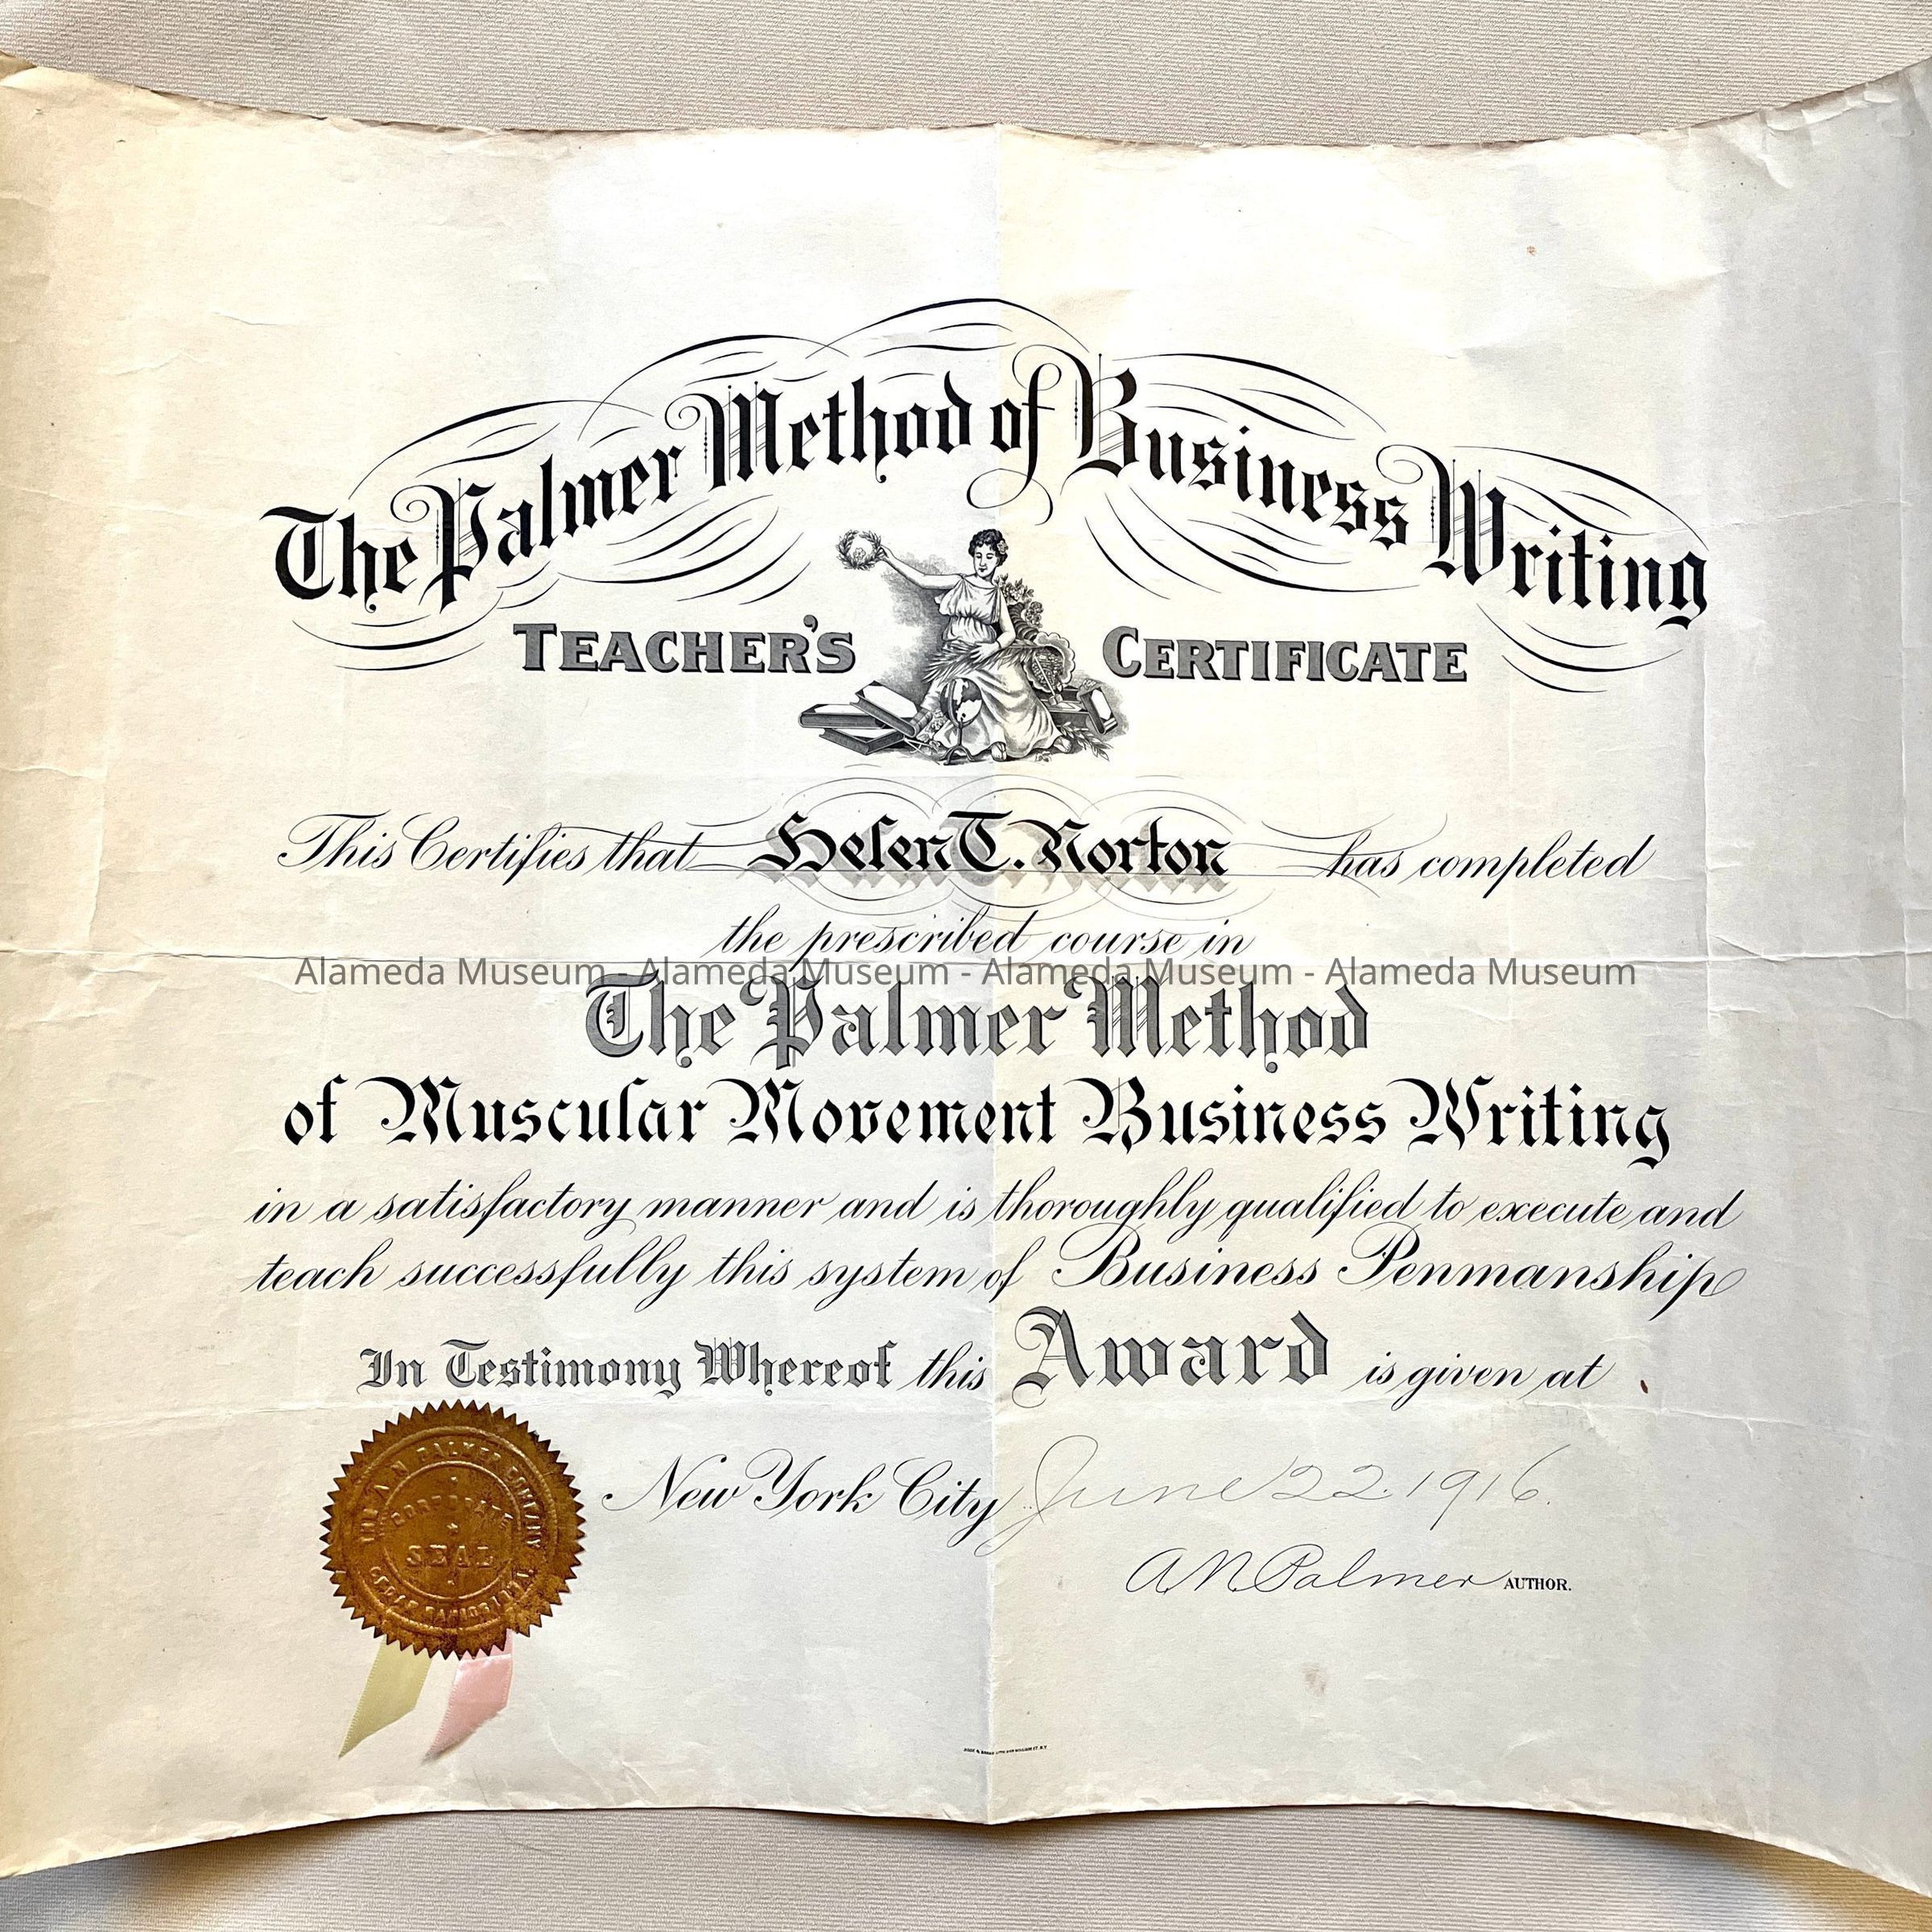 The Palmer Method of Business Writing
TEACHER'S CERTIFICATE
This Certifies that Helen T. Norton has completed
the prescribed course in
Alameda Museum - Alameda Museum - Alameda Museum - Alameda Museum
The Palmer Method
of Muscular Movement Business Writing
in a satisfactory manner and is thoroughly qualified to execute and
teach successfully this system of Business Penmanship
In Testimony Whereof this Award is given at
New York City June 22. 1916.
A. N. Palmer AUTHOR.
PALMER COMPANY
CORPORATE
SEAL
CEDAR RAPIDS IOWA